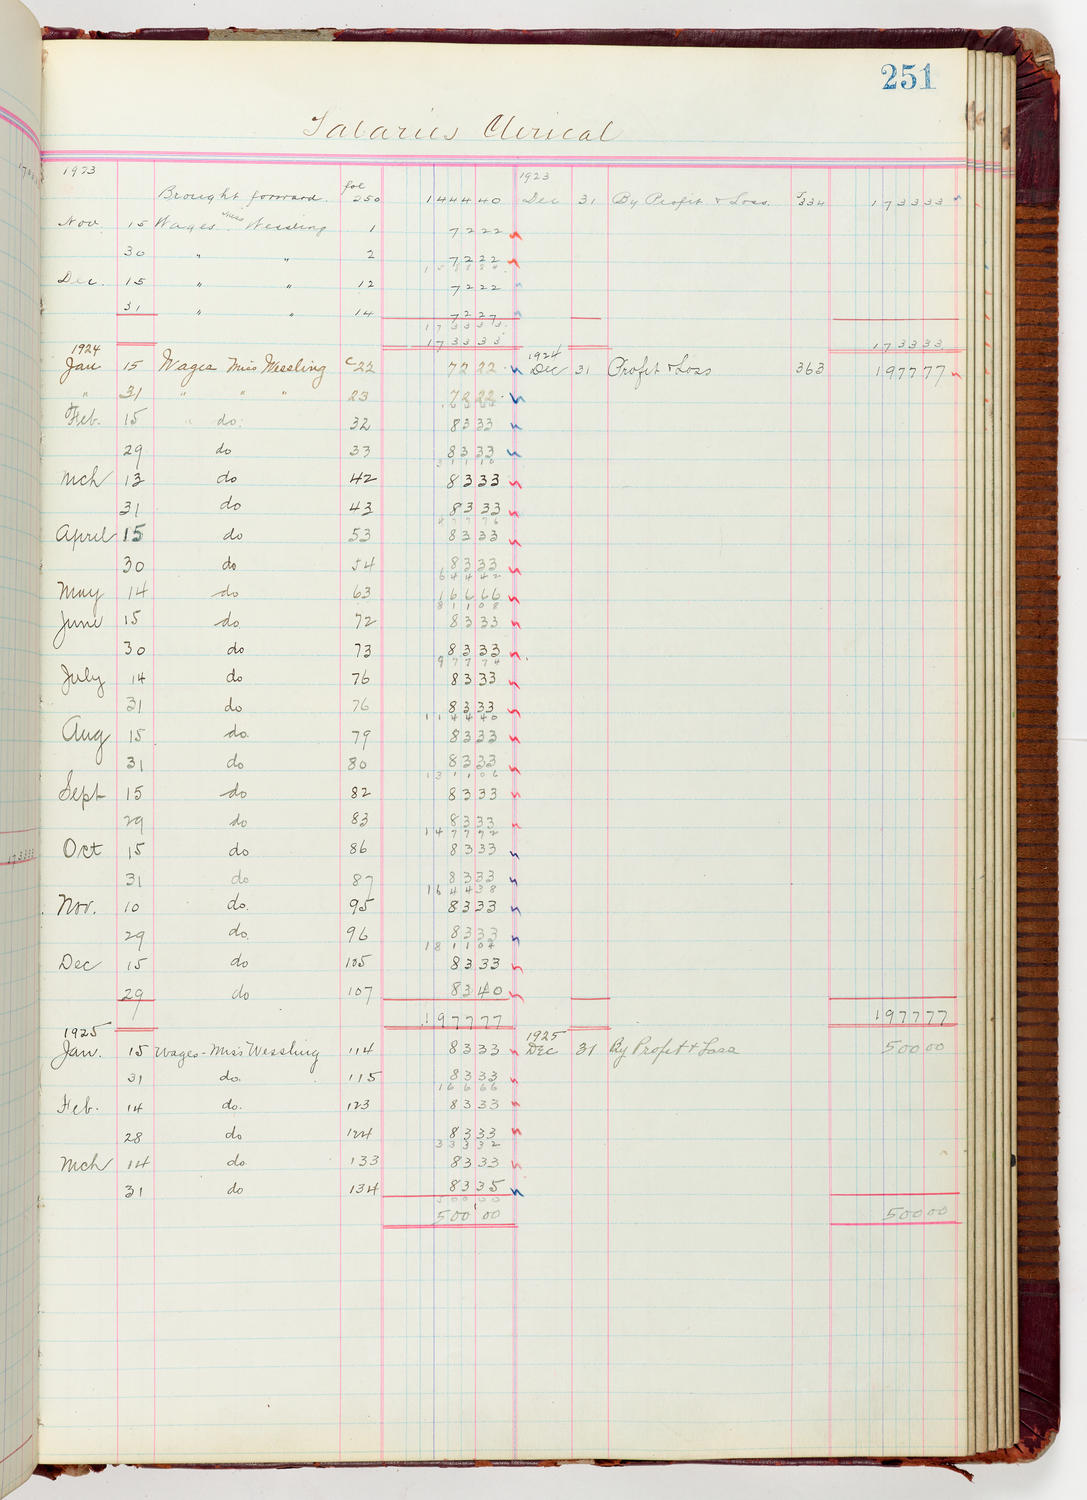 251
Salaries Clerical
1923 1923
Brought forward. fol 250 1444 40 Dec 31 By Profit & Loss. J334 1733 33
Nov. 15 Wages Miss Wessling 1 72 22
30 " " 2 72 22
1588 84
Dec. 15 " " 12 72 22
31 " " 14 72 27
1733 33
1733 33 1733 33
1924 1924
Jan 15 Wages Miss Wessling C22 72 22 Dec 31 Profit & Loss 363 1977 77
" 31 " " " 23 72 22
Feb. 15 " do. 32 83 33
29 do 33 83 33
311 10
Mch 13 do 42 83 33
31 do 43 83 33
477 76
April 15 do 53 83 33
30 do 54 83 33
644 42
May 14 do 63 166 66
811 08
June 15 do. 72 83 33
30 do 73 83 33
977 74
July 14 do 76 83 33
31 do 76 83 33
1144 40
Aug 15 do. 79 83 33
31 do 80 83 33
1311 06
Sept 15 do 82 83 33
29 do 83 83 33
1477 72
Oct 15 do 86 83 33
31 do 87 83 33
1644 38
Nov. 10 do. 95 83 33
29 do. 96 83 33
1811 04
Dec 15 do 105 83 33
29 do 107 83 40
1977 77 1977 77
1925 1925
Jan. 15 Wages - Miss Wessling 114 83 33 Dec 31 By Profit & Loss 500 00
31 do. 115 83 33
166 66
Feb. 14 do. 123 83 33
28 do 124 83 33
333 32
Mch 14 do 133 83 33
31 do 134 83 35
500 00
500 00 500 00